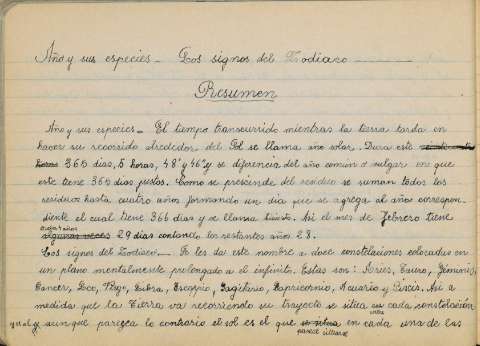 Año y sus especies – Los signos del Zodiaco
Resumen
Año y sus especies – El tiempo transcurrido mientras la tierra tarda en
hacer su recorrido alrededor del Sol se llama año solar. Dura este
horas 365 dias, 5 horas, 48' y 46'' y se diferencia del año común o vulgar en que
este tiene 365 dias justos. Como se prescinde del residuo se suman todos los
residuos hasta cuatro años formando un dia que se agrega al años correspon-
diente el cual tiene 366 dias y se llama bisiesto. Asi el mes de Febrero tiene
cada 4 años
algunas veces 29 dias contando los restantes años 28.
Los signos del Zodiaco. – Se les da este nombre a doce constelaciones colocadas en
un plano mentalmente prolongado a el infinito. Estas son: Aries, Tauro, Jeminis,
Cancer, Leo, Virgo, Libra, Escorpio, Sagitario, Capricornio, Acuario y Piscis. Asi a
medida que la Tierra va recorriendo su trayecto se situa en cada constelación
y aunque parezca lo contrario el sol es el que se situa en cada una de las
parece situarse